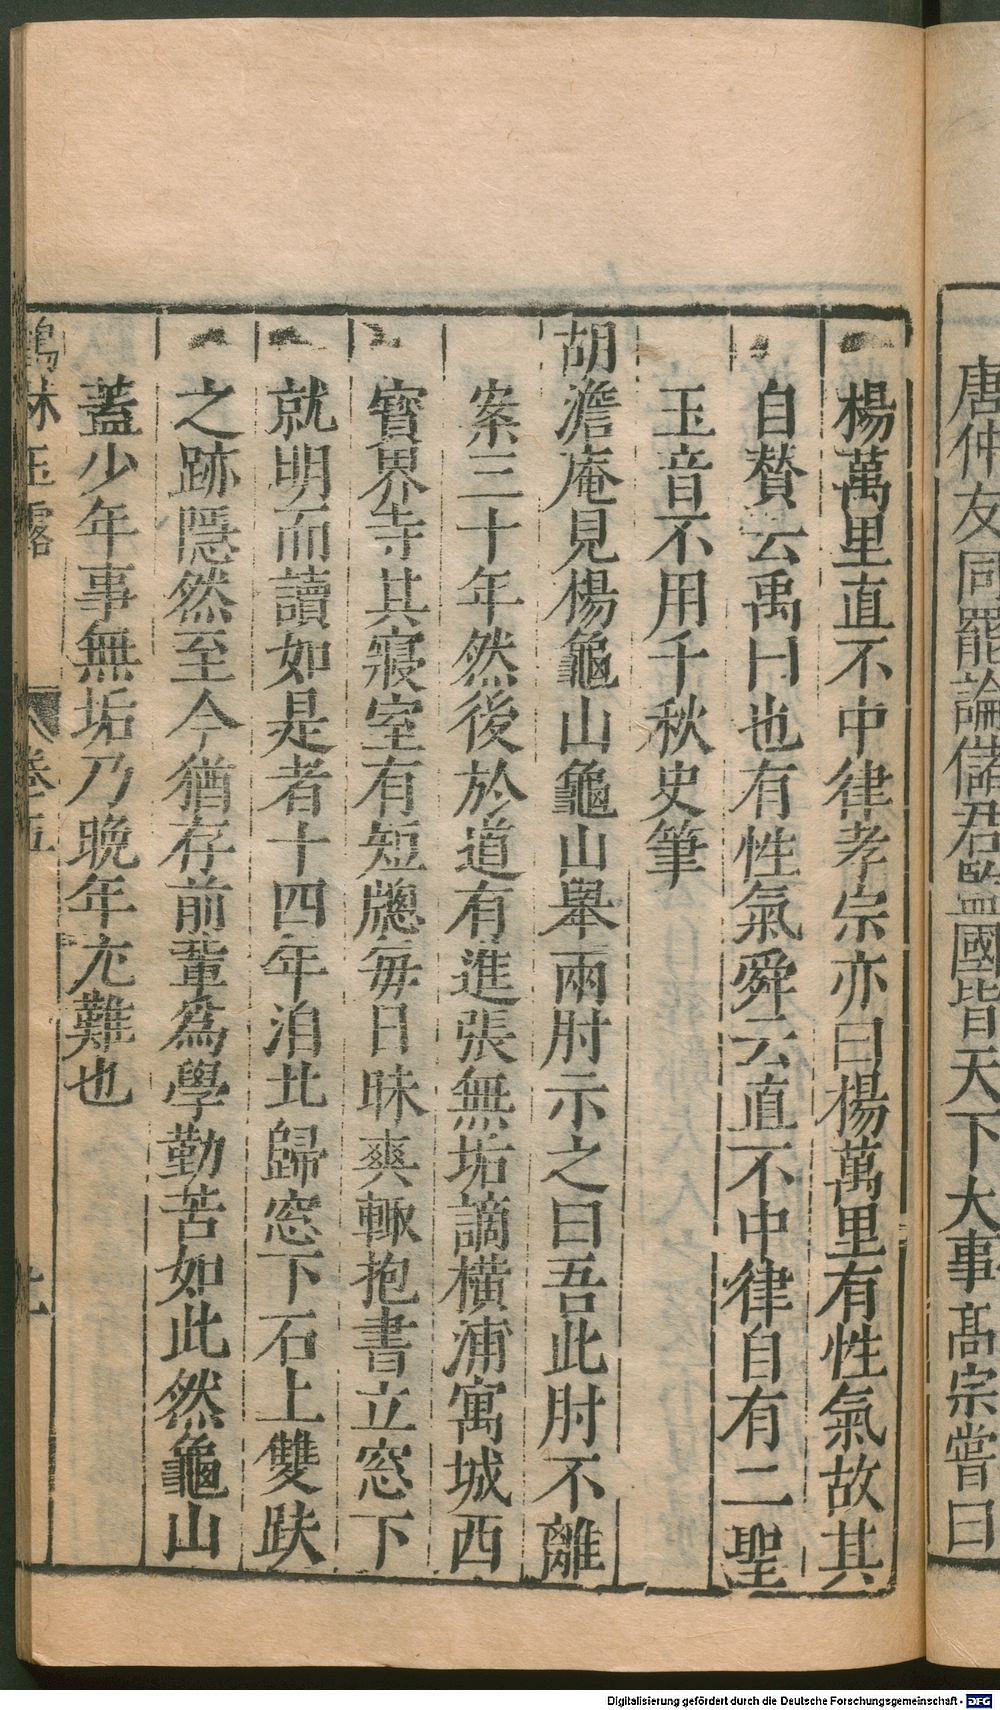 唐仲友同罷論儲君監國皆天下大事高宗嘗曰
楊萬里直不中律孝宗亦曰楊萬里有性氣故其
自賛云禹曰也有性氣舜云直不中律自有二聖
玉音不用千秋史筆
胡澹庵見楊龜山龜山舉兩肘示之曰吾此肘不離
案三十年然後於道有進張無垢謫橫浦寓城西
寳界寺其寢室有短牕每日昧爽輙抱書立窓下
就明而讀如是者十四年洎北歸窓下石上雙趺
之跡隱然至今猶存前輩爲學勤苦如此然龜山
蓋少年事無垢乃晚年尤難也
鶴林玉露 卷五
Digitalisierung gefördert durch die Deutsche Forschungsgemeinschaft - DFG